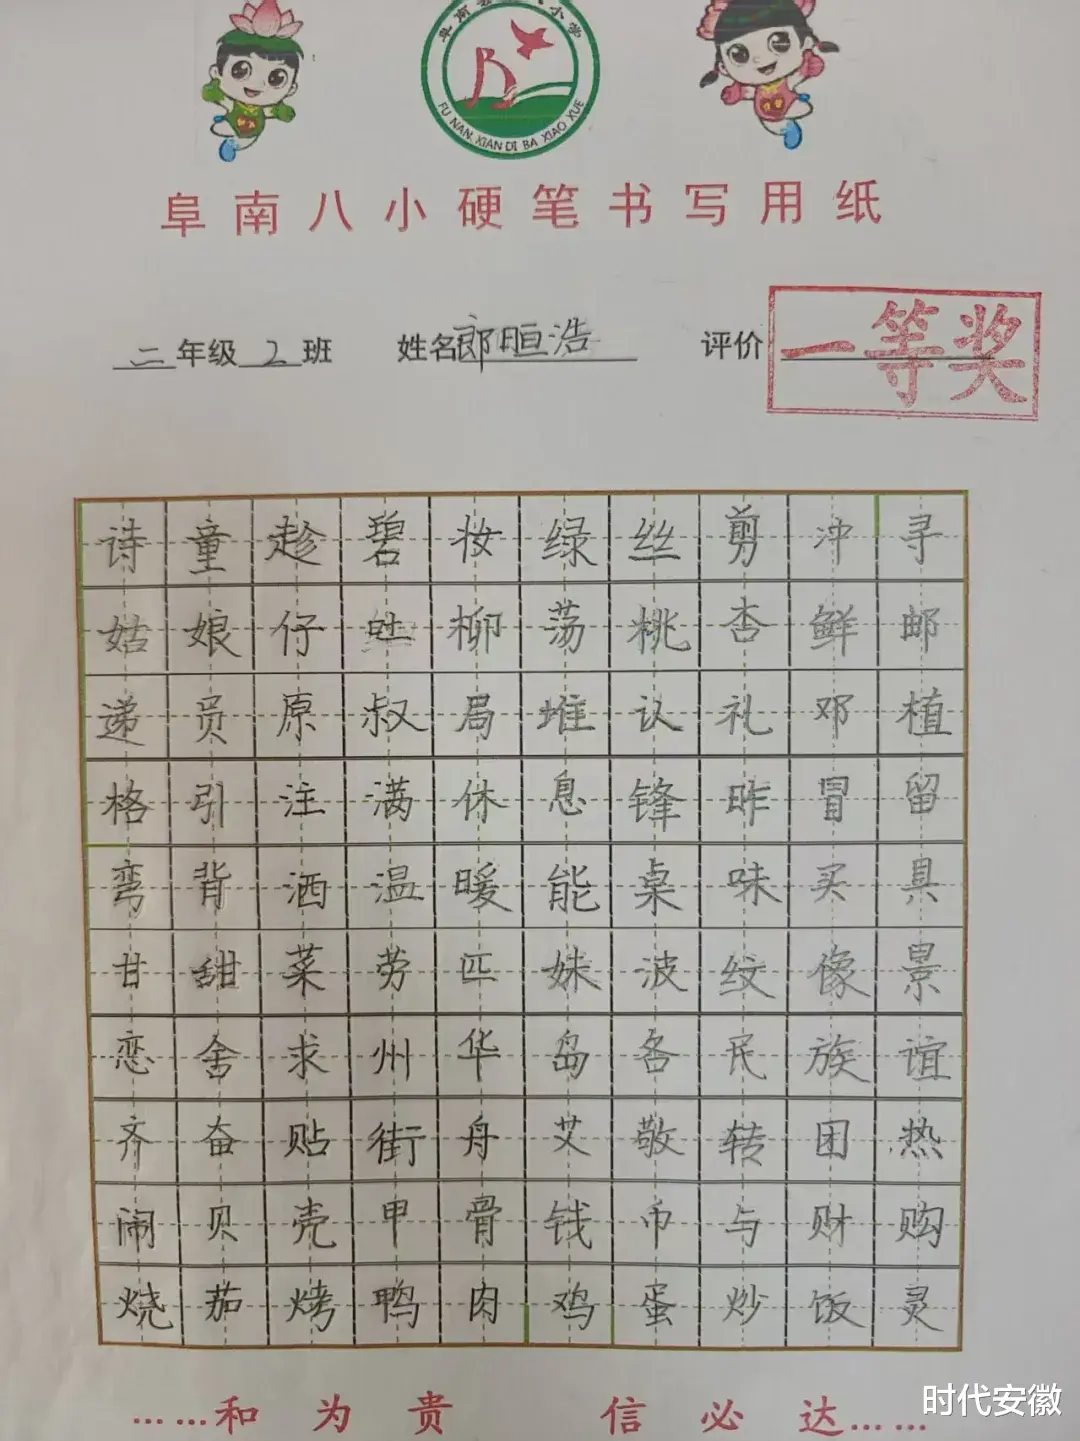 FU NAN XIAN DI BA XIAO XUE
阜南八小硬笔书写用纸
二年级 2 班 姓名 郎晅浩 评价 一等奖
诗童趁碧妆绿丝剪冲寻
姑娘仔吐柳荡桃杏鲜邮
递员原叔局堆认礼邓植
格引注满休息锋昨冒留
弯背洒温暖能桌味买具
甘甜菜劳匹妹波纹像景
恋舍求州华岛各民族谊
齐奋贴街舟艾敬转团热
闹贝壳甲骨钱币与财购
烧茄烤鸭肉鸡蛋炒饭灵
……和为贵 信必达……
时代安徽